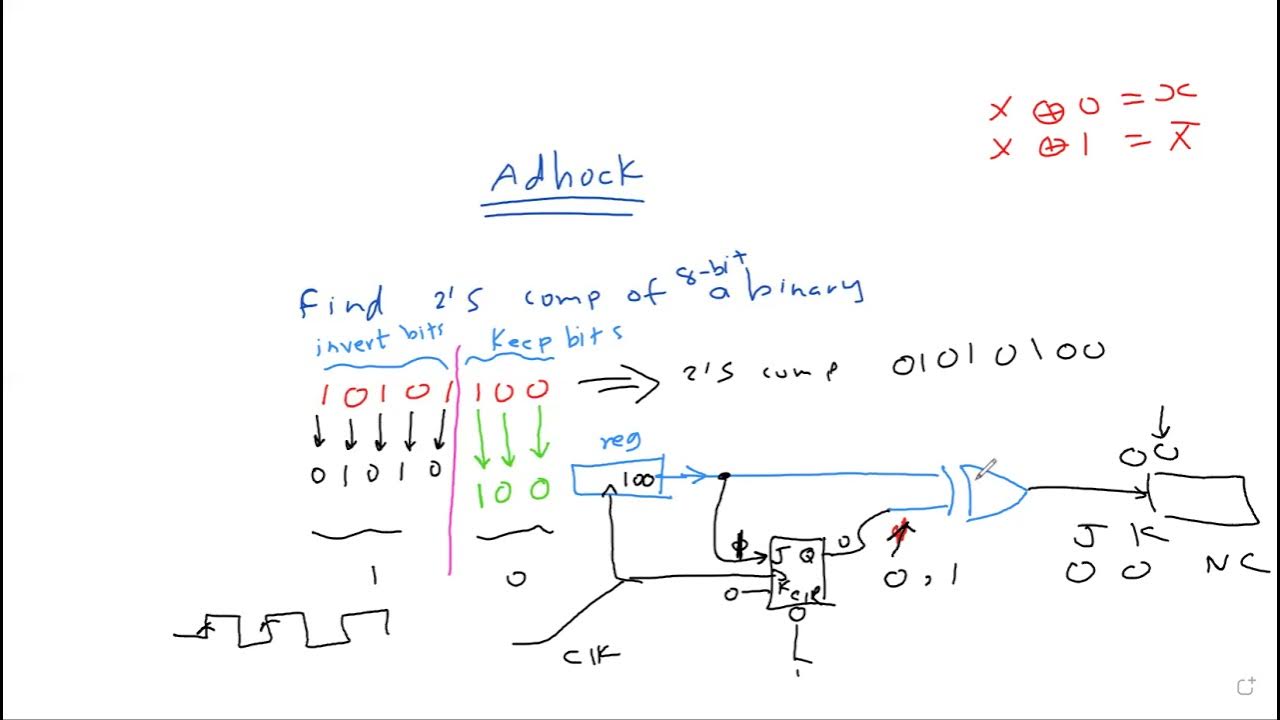 x ⊕ 0 = x
x ⊕ 1 = x̄
Adhock
Find 2'S comp of a binary
8-bit
invert bits
Keep bits
1 0 1 0 1 1 0 0
2'S comp 01010100
0 1 0 1 0
1 0 0
reg
100
00
J Q
0
K
CLR
0
0
0 , 1
J K
0 0 NC
1
0
1
CLK